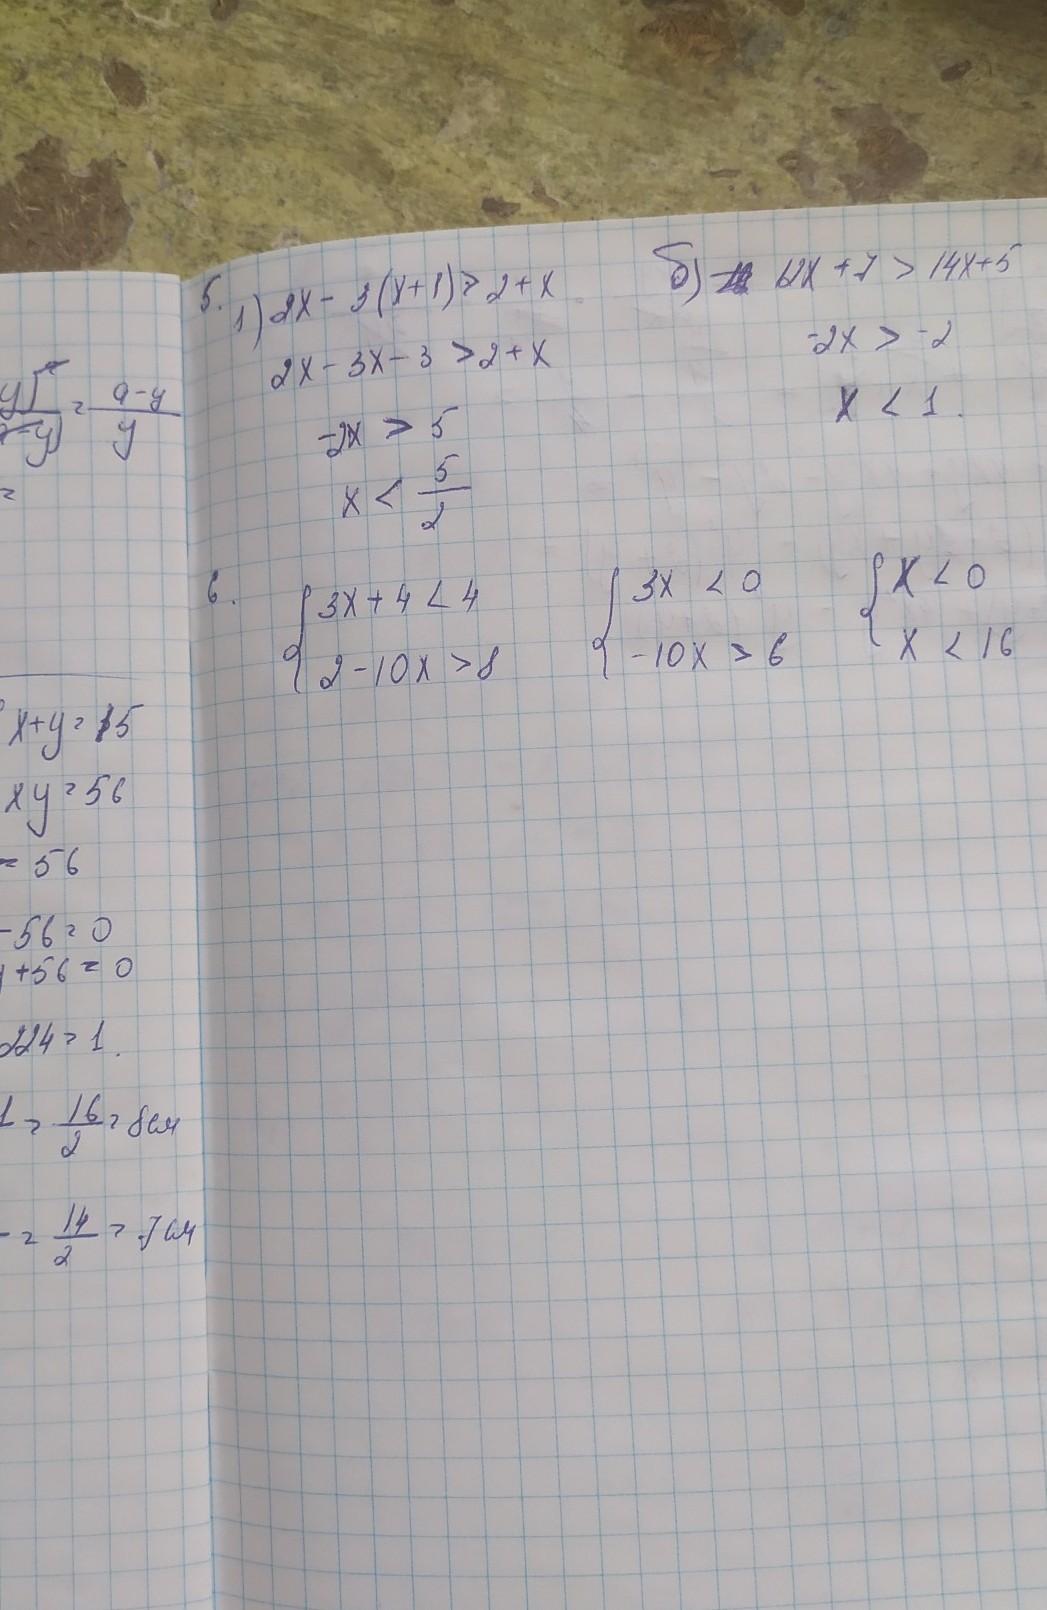 y)² / (a-y) = a-y / y
=
x+y=15
xy=56
= 56
-56=0
y+56=0
224=1.
1 = 16/2 = 8см
- = 14/2 = 7см
5. 1) 2x - 3(x+1) > 2+x
2x - 3x - 3 > 2+x
-2x > 5
x < 5/2
б) 12x + 7 > 14x+5
-2x > -2
x < 1.
6. { 3x + 4 < 4 { 3x < 0 { x < 0
2 - 10x > 8 -10x > 6 x < 16